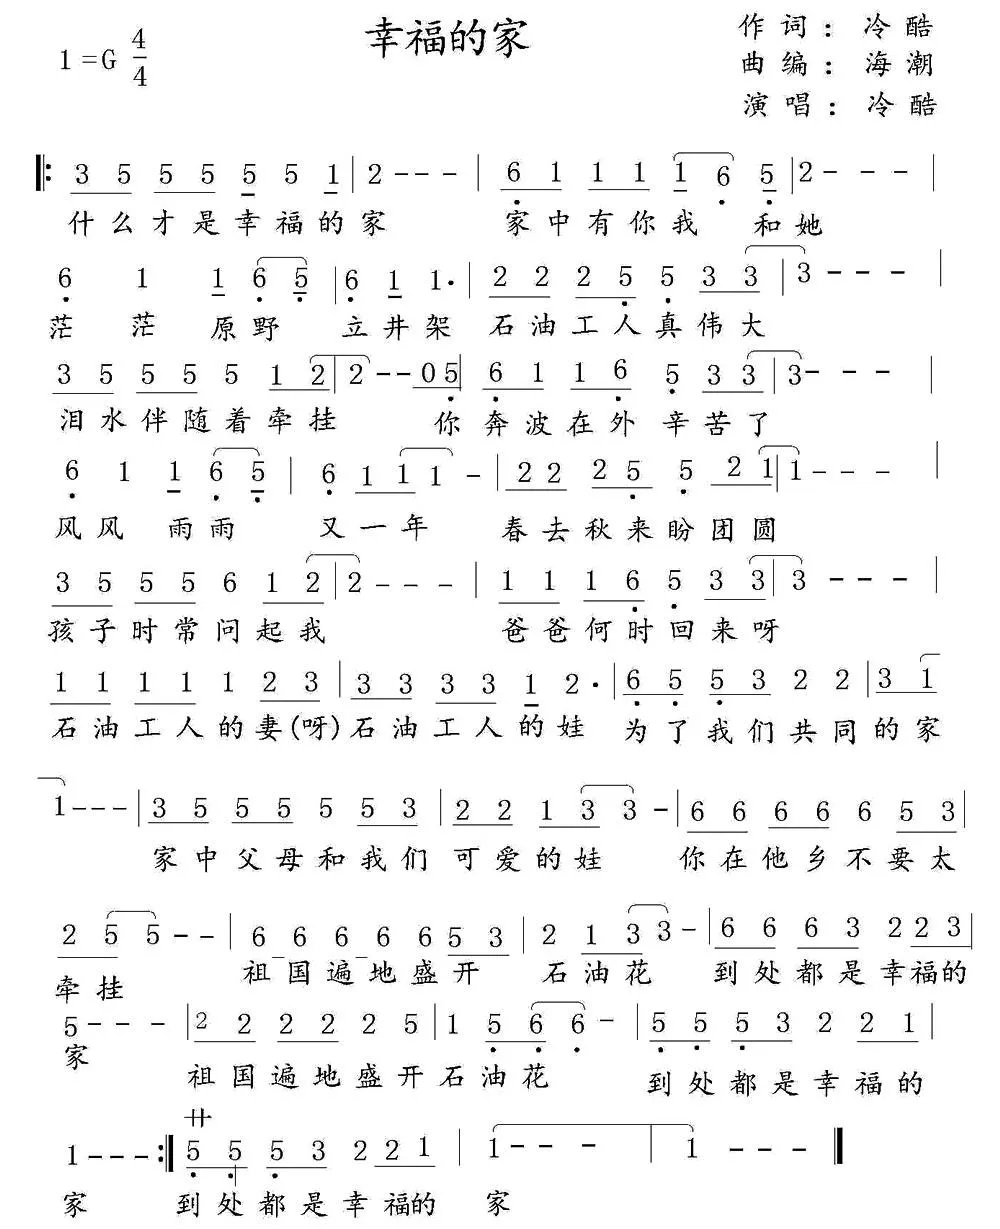 幸福的家
作词：冷酷
1=G 4/4
曲编：海潮
演唱：冷酷
3 5 5 5 5 5 1 | 2 - - - | 6 1 1 1 1 6 5 | 2 - - - |
什么才是幸福的家 家中有你我 和她
6 1 1 6 5 | 6 1 1· | 2 2 2 5 5 3 3 | 3 - - - |
茫 茫 原野 立井架 石油工人真伟大
3 5 5 5 5 1 2 | 2 - - 0 5 | 6 1 1 6 5 3 3 | 3 - - - |
泪水伴随着牵挂 你奔波在外 辛苦了
6 1 1 6 5 | 6 1 1 1 - | 2 2 2 5 5 2 1 | 1 - - - |
风风 雨雨 又一年 春去秋来盼团圆
3 5 5 5 6 1 2 | 2 - - - | 1 1 1 6 5 3 3 | 3 - - - |
孩子时常问起我 爸爸何时回来呀
1 1 1 1 1 2 3 | 3 3 3 3 1 2· | 6 5 5 3 2 2 | 3 1
石油工人的妻(呀)石油工人的娃 为了我们共同的家
1 - - - | 3 5 5 5 5 5 3 | 2 2 1 3 3 - | 6 6 6 6 6 5 3 |
家中父母和我们 可爱的娃 你在他乡不要太
2 5 5 - - | 6 6 6 6 6 5 3 | 2 1 3 3 - | 6 6 6 3 2 2 3 |
牵挂 祖国遍地盛开 石油花 到处都是幸福的
5 - - - | 2 2 2 2 2 5 | 1 5 6 6 - | 5 5 5 3 2 2 1 |
家 祖国遍地盛开石油花 到处都是幸福的
1 - - - :| 5 5 5 3 2 2 1 | 1 - - - | 1 - - - |
家 到处都是幸福的 家